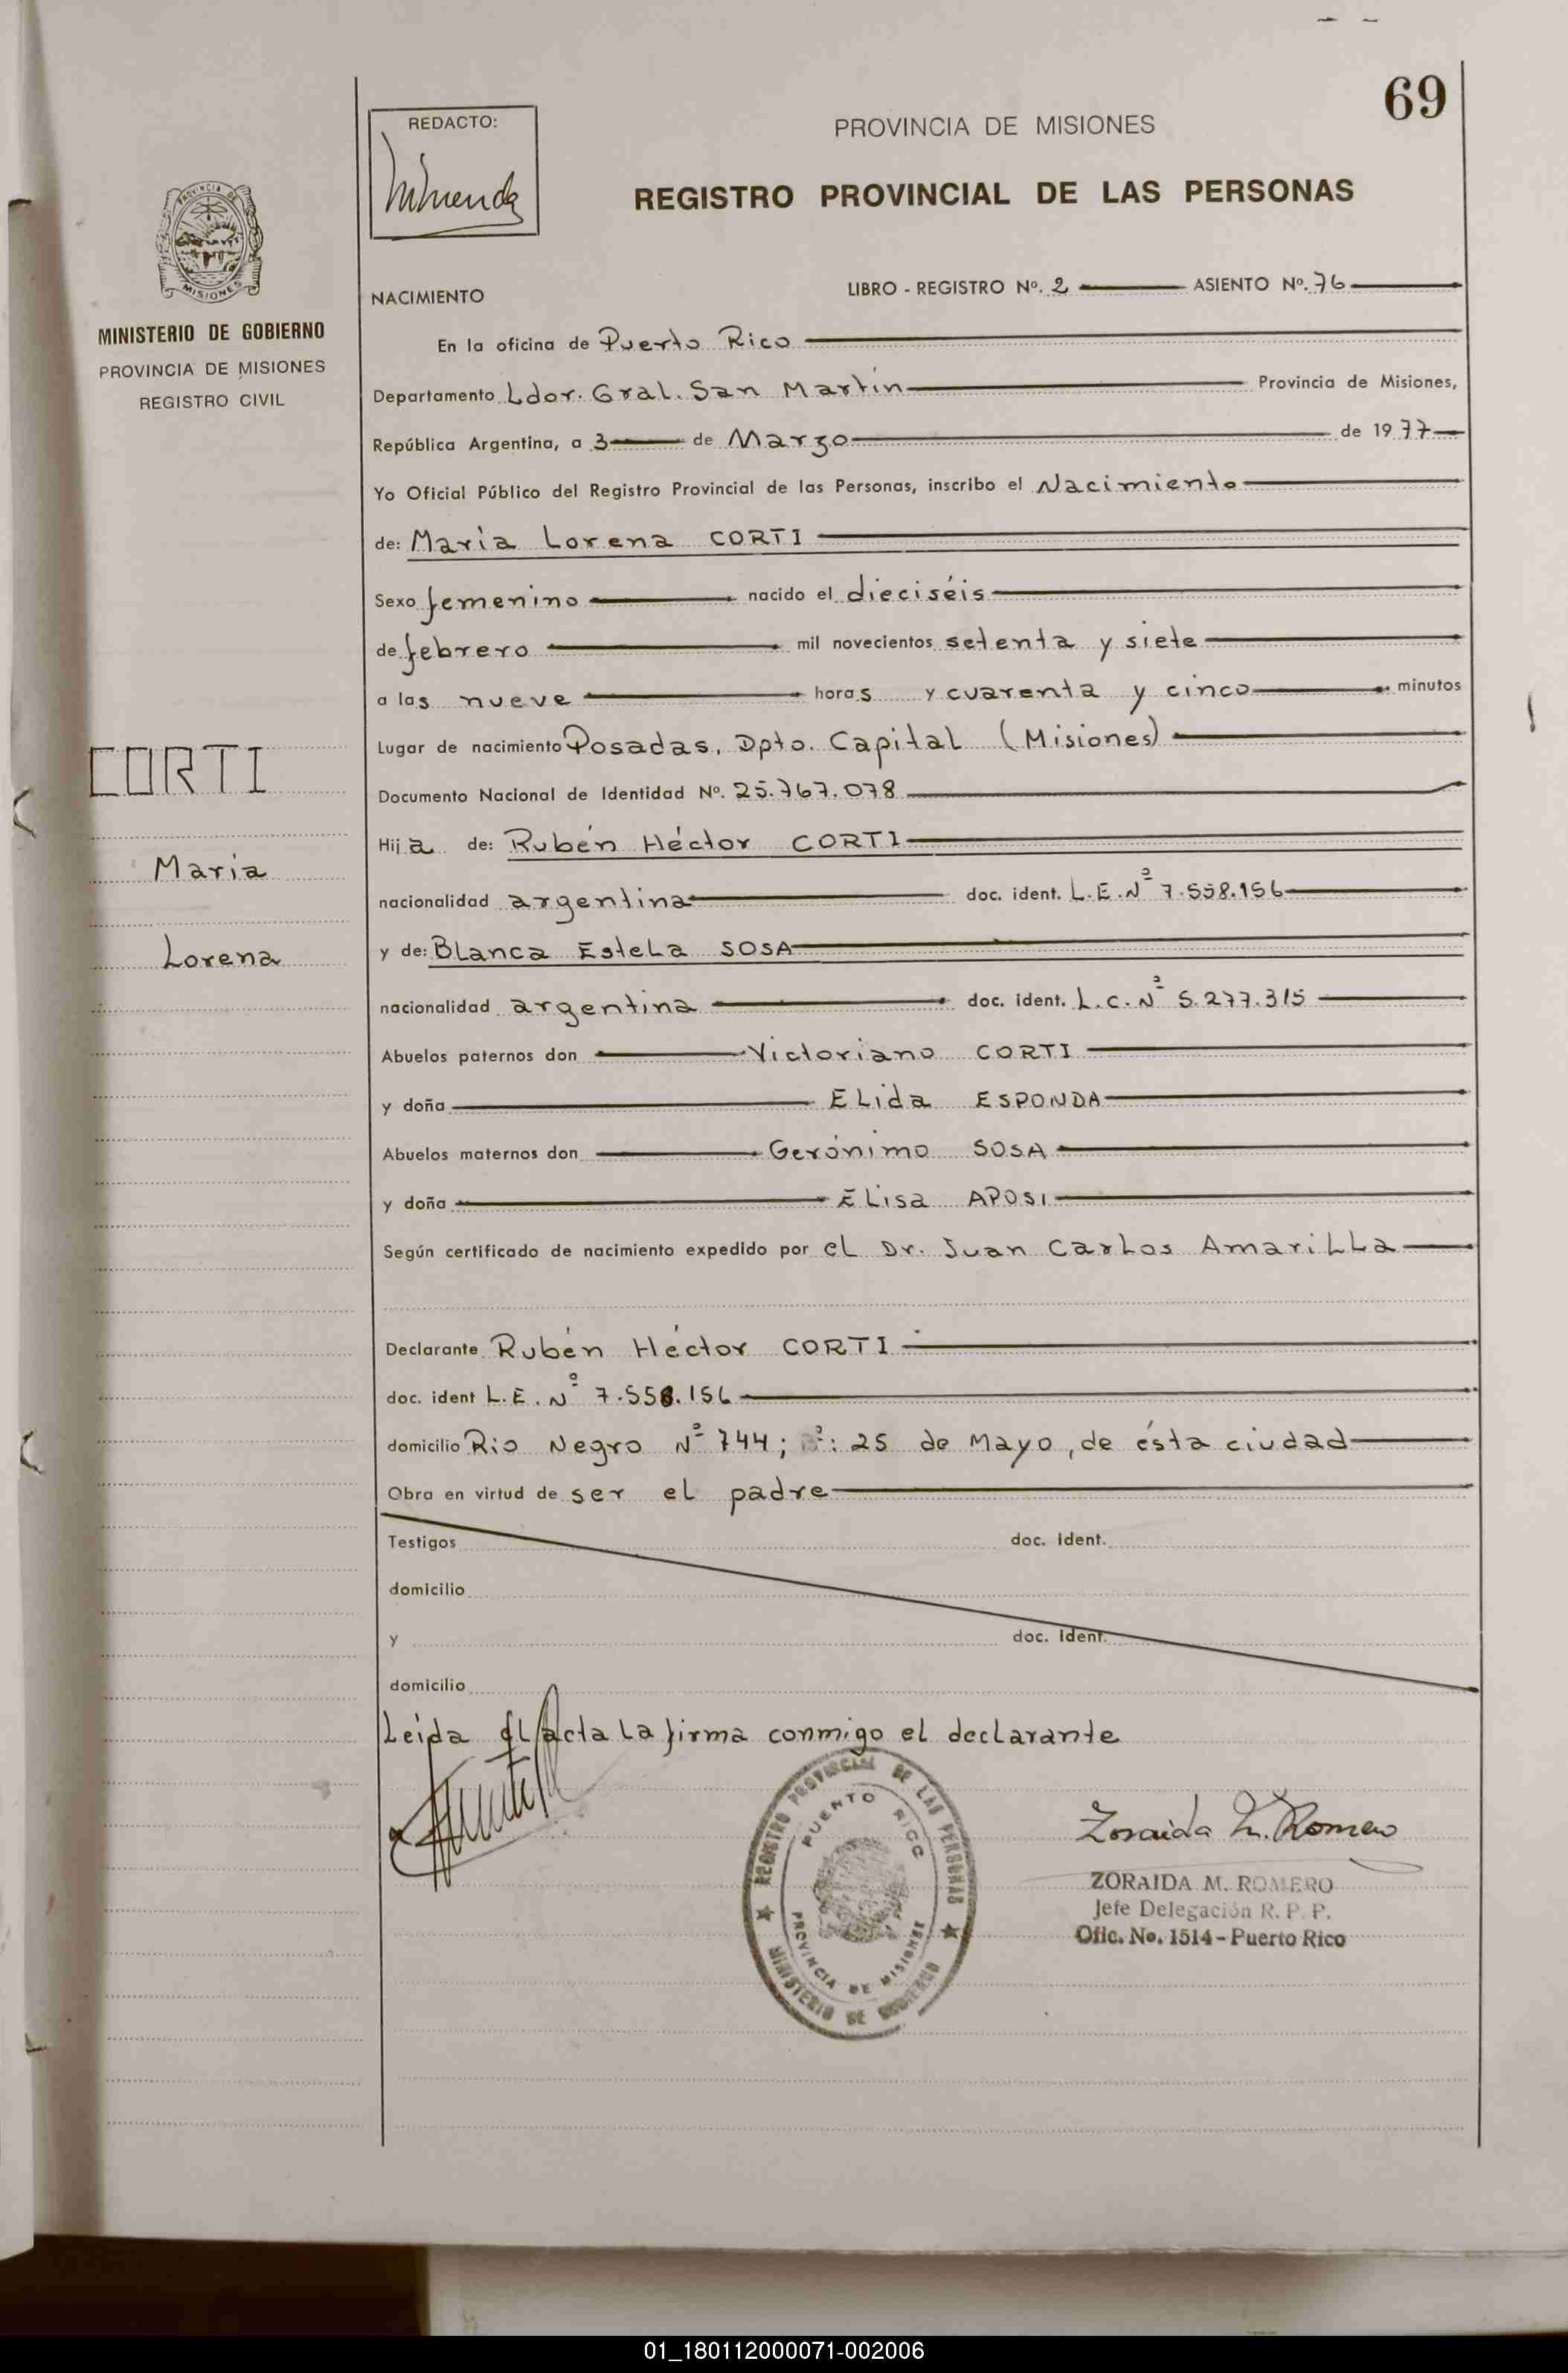 69
REDACTO:
PROVINCIA DE MISIONES
REGISTRO PROVINCIAL DE LAS PERSONAS
PROVINCIA DE
MISIONES
MINISTERIO DE GOBIERNO
PROVINCIA DE MISIONES
REGISTRO CIVIL
CORTI
María
Lorena
NACIMIENTO
LIBRO - REGISTRO Nº. 2 ASIENTO Nº. 76
En la oficina de Puerto Rico
Departamento Ldor. Gral. San Martín Provincia de Misiones,
República Argentina, a 3 de Marzo de 1977
Yo Oficial Público del Registro Provincial de las Personas, inscribo el Nacimiento
de: María Lorena CORTI
Sexo femenino nacido el dieciséis
de febrero mil novecientos setenta y siete
a las nueve horas y cuarenta y cinco minutos
Lugar de nacimiento Posadas, Dpto. Capital (Misiones)
Documento Nacional de Identidad Nº. 25.767.078
Hija de: Rubén Héctor CORTI
nacionalidad argentina doc. ident. L.E.Nº 7.558.156
y de: Blanca Estela SOSA
nacionalidad argentina doc. ident. L.C.Nº 5.277.315
Abuelos paternos don Victoriano CORTI
y doña Elida ESPONDA
Abuelos maternos don Gerónimo SOSA
y doña Elisa APOSI
Según certificado de nacimiento expedido por el Dr. Juan Carlos Amarilla
Declarante Rubén Héctor CORTI
doc. ident L.E. Nº 7.558.156
domicilio Río Negro Nº 744; Bº: 25 de Mayo, de ésta ciudad
Obra en virtud de ser el padre
Testigos doc. Ident.
domicilio
y doc. Ident.
domicilio
Leída el acta la firma conmigo el declarante
REGISTRO PROVINCIAL DE LAS PERSONAS
PUERTO RICO
PROVINCIA DE MISIONES
MINISTERIO DE GOBIERNO
Zoraida M. Romero
ZORAIDA M. ROMERO
Jefe Delegación R. P. P.
Ofic. No. 1514 - Puerto Rico
01_180112000071-002006